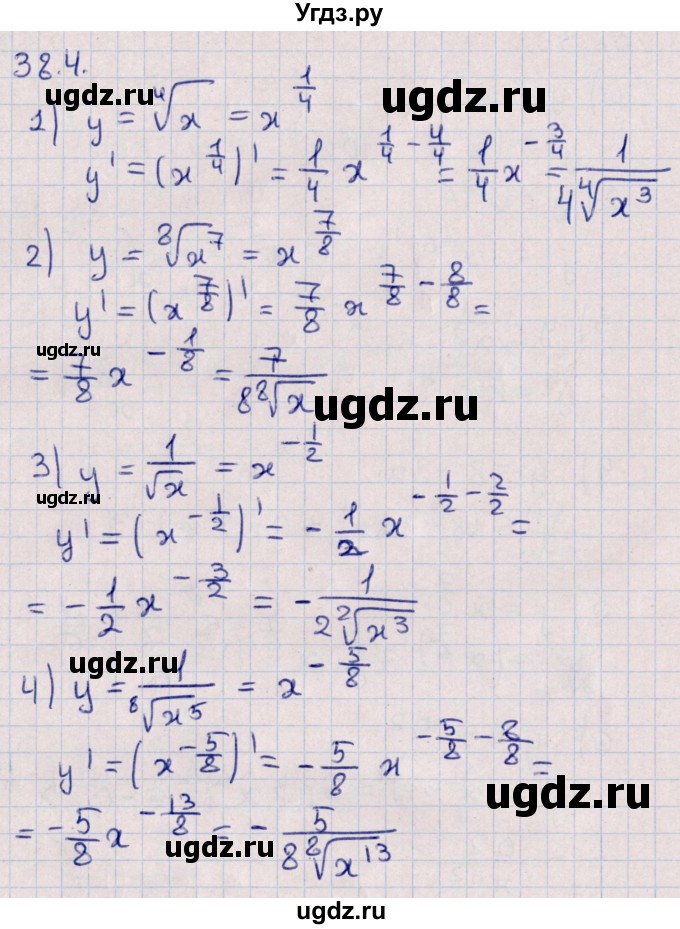 Угдз.ру
38.4.
ugdz.ru ugdz.ru
1) y = ⁴√x = x^(1/4)
y' = (x^(1/4))' = 1/4 x^(1/4 - 4/4) = 1/4 x^(-3/4) = 1/(4 ⁴√(x³))
2) y = ⁸√x⁷ = x^(7/8)
ugdz.ru
y' = (x^(7/8))' = 7/8 x^(7/8 - 8/8) =
ugdz.ru
= 7/8 x^(-1/8) = 7/(8 ⁸√x)
ugdz.ru
3) y = 1/√x = x^(-1/2)
y' = (x^(-1/2))' = - 1/2 x^(-1/2 - 2/2) =
= - 1/2 x^(-3/2) = - 1/(2 ²√(x³))
ugdz.ru
4) y = 1/⁸√x⁵ = x^(-5/8)
y' = (x^(-5/8))' = - 5/8 x^(-5/8 - 8/8) =
ugdz.ru
= - 5/8 x^(-13/8) = - 5/(8 ⁸√(x¹³))
ugdz.ru
ugdz.ru